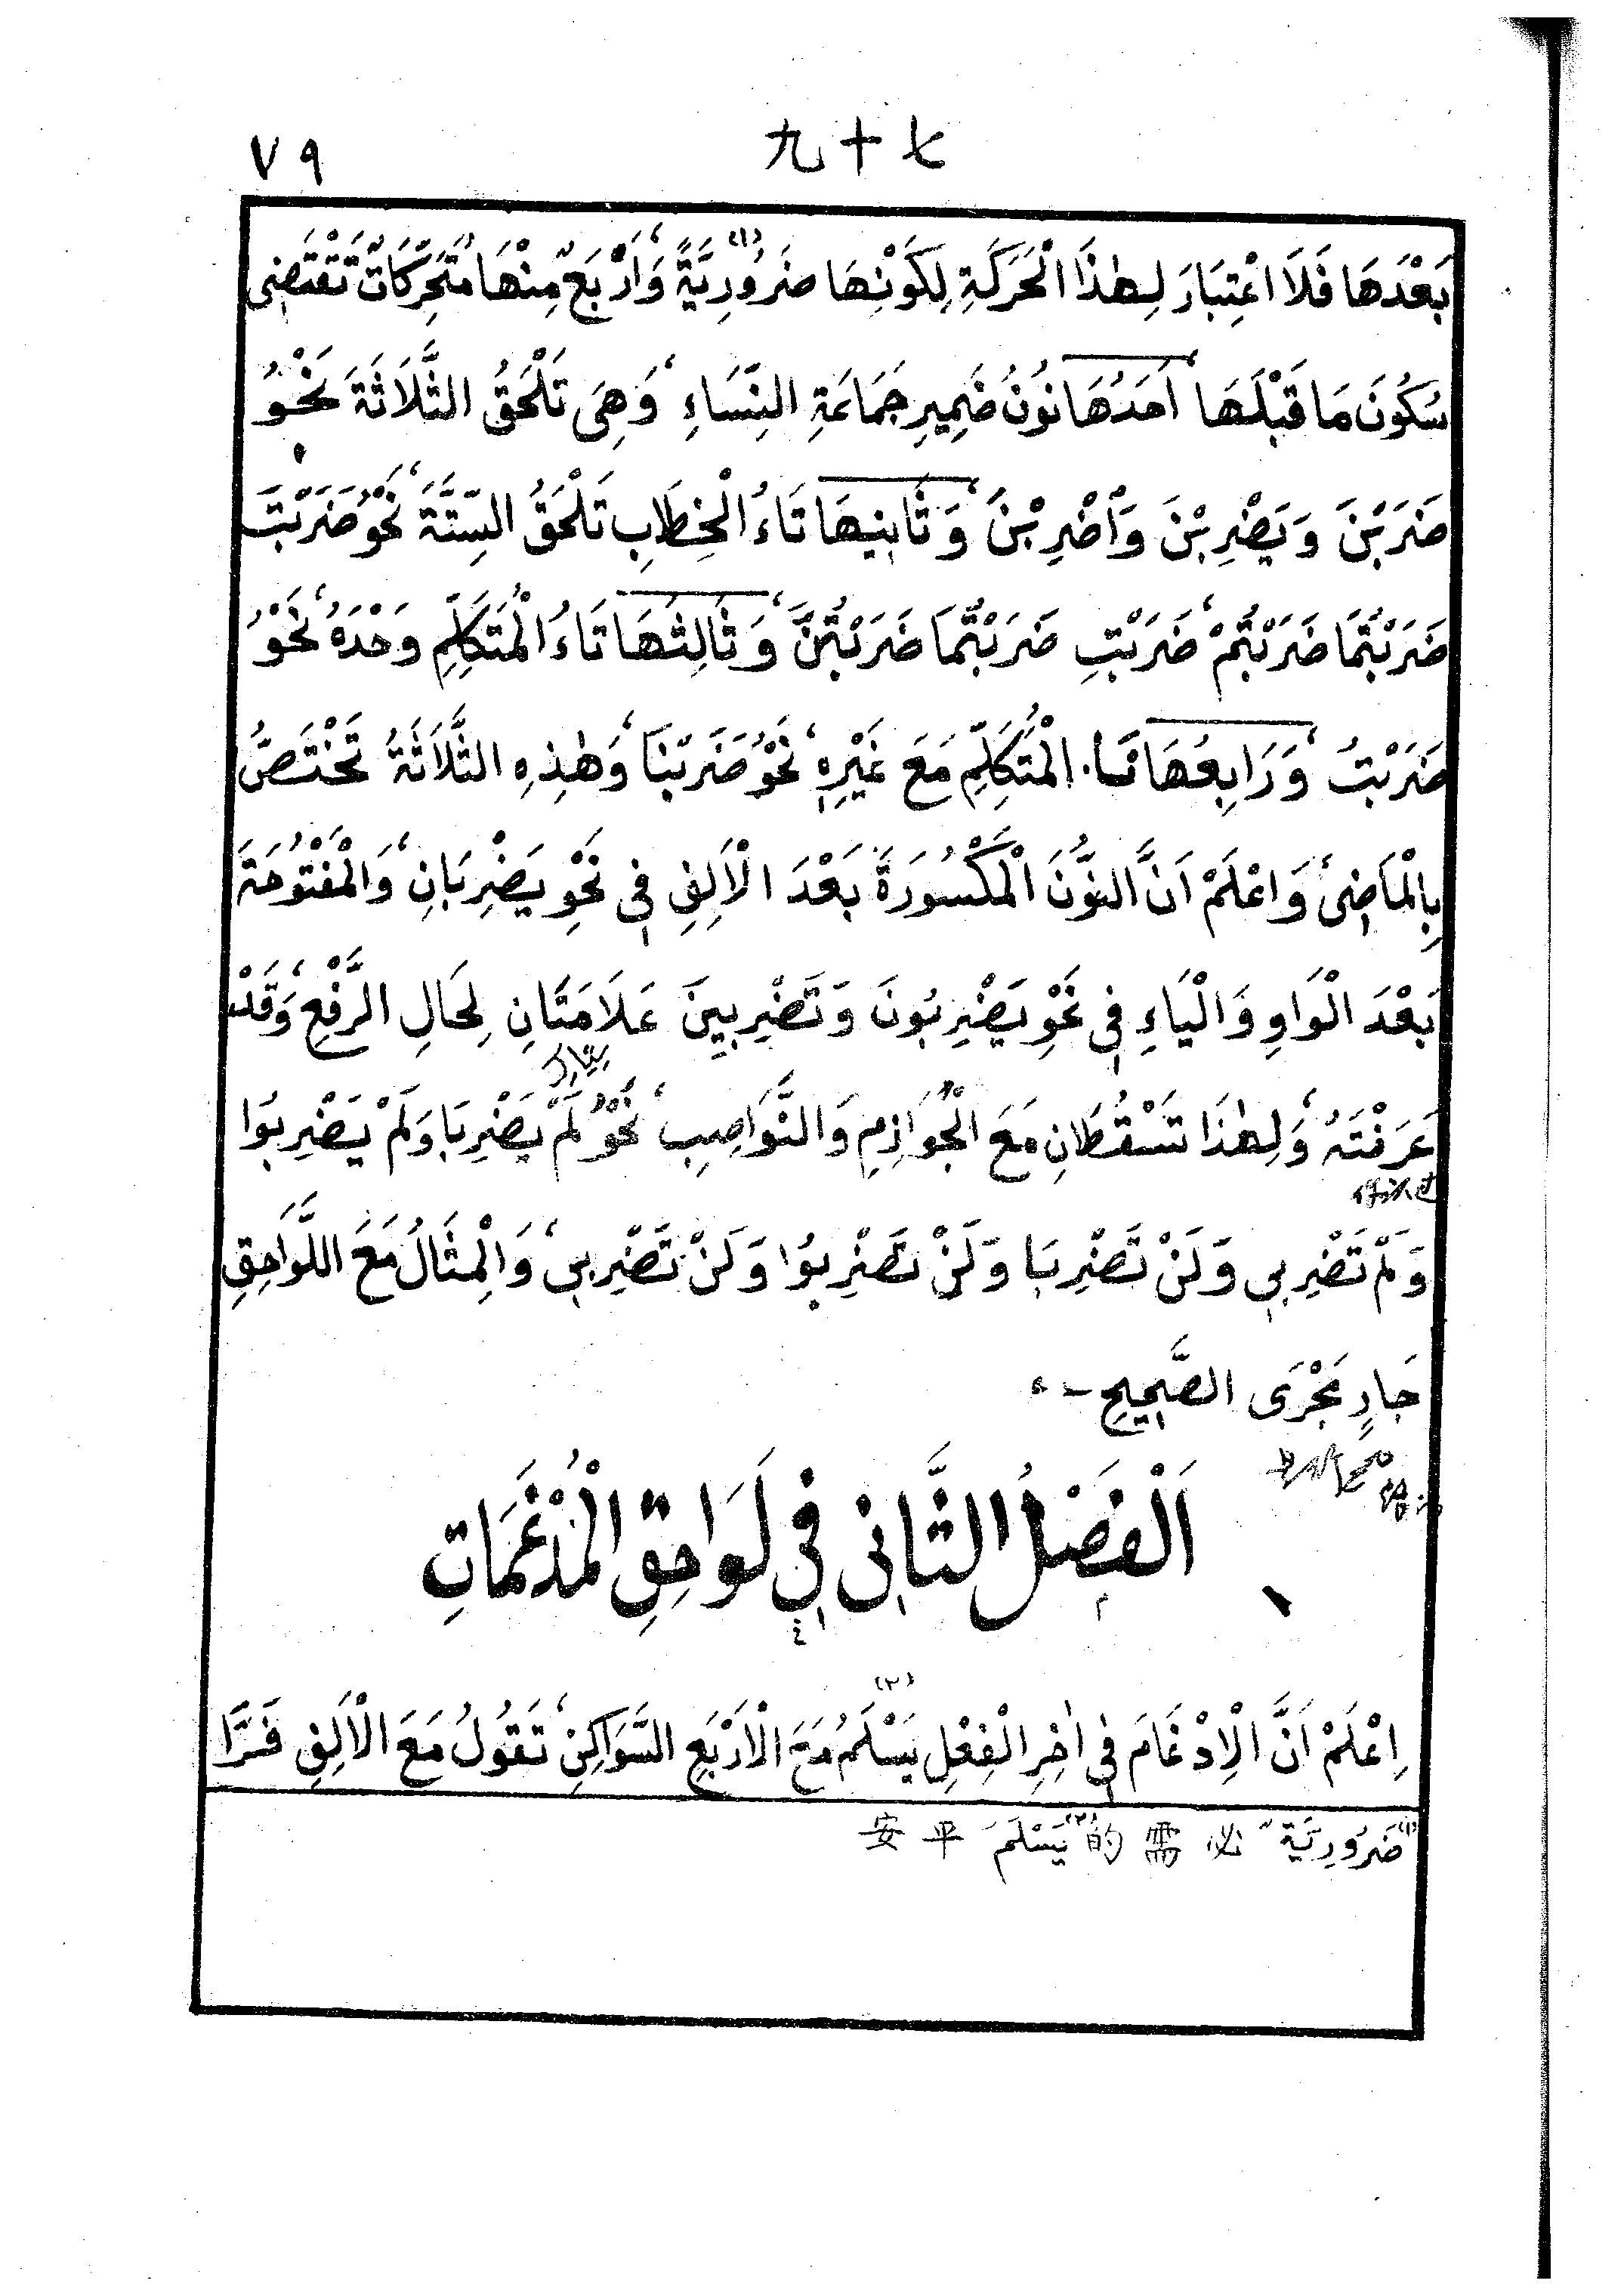 ٧٩
九十七
بَعْدَهَا فَلَا اعْتِبَارَ لِهٰذَا الْحَرَكَةِ لِكَوْنِهَا ضَرُورِيَّةً (١) وَاَرْبَعٌ مِنْهَا مُتَحَرِّكَاتٌ تَقْتَضِى
سُكُونَ مَا قَبْلَهَا اَحَدُهَا نُونُ ضَمِيرِ جَمَاعَةِ النِّسَاءِ، وَهِىَ تَلْحَقُ الثَّلَاثَةَ نَحْوُ
ضَرَبْنَ وَيَضْرِبْنَ وَاضْرِبْنَ، وَثَانِيهَا تَاءُ الْخِطَابِ تَلْحَقُ السِّتَّةَ، نَحْوُ ضَرَبْتَ
ضَرَبْتُمَا ضَرَبْتُمْ، ضَرَبْتِ ضَرَبْتُمَا ضَرَبْتُنَّ، وَثَالِثُهَا تَاءُ الْمُتَكَلِّمِ وَحْدَهُ، نَحْوُ
ضَرَبْتُ، وَرَابِعُهَا نَا الْمُتَكَلِّمِ مَعَ غَيْرِهِ، نَحْوُ ضَرَبْنَا، وَهٰذِهِ الثَّلَاثَةُ تَخْتَصُّ
بِالْمَاضِى، وَاعْلَمْ اَنَّ النُّونَ الْمَكْسُورَةَ بَعْدَ الْاَلِفِ فِى نَحْوِ يَضْرِبَانِ، وَالْمَفْتُوحَةَ
بَعْدَ الْوَاوِ وَالْيَاءِ فِى نَحْوِ يَضْرِبُونَ وَتَضْرِبِينَ عَلَامَتَانِ لِحَالِ الرَّفْعِ، وَقَدْ
عَرَفْتَهُ، وَلِهٰذَا تَسْقُطَانِ مَعَ الْجَوَازِمِ وَالنَّوَاصِبِ، نَحْوُ لَمْ يَضْرِبَا وَلَمْ يَضْرِبُوا
وَلَمْ تَضْرِبِى وَلَنْ تَضْرِبَا وَلَنْ تَضْرِبُوا وَلَنْ تَضْرِبِى، وَالْمِثَالُ مَعَ اللَّوَاحِقِ
جَارٍ مَجْرَى الصَّحِيحِ -
اَلْفَصْلُ الثَّانِى فِى لَوَاحِقِ الْمُدْغَمَاتِ
اِعْلَمْ اَنَّ الْاِدْغَامَ فِى اٰخِرِ الْفِعْلِ يَسْلَمُ (٢) مَعَ الْاَرْبَعِ السَّوَاكِنِ، تَقُولُ مَعَ الْاَلِفِ فَرَّا
(١) ضَرُورِيَّةً 必需的 (٢) يَسْلَمَ 平安